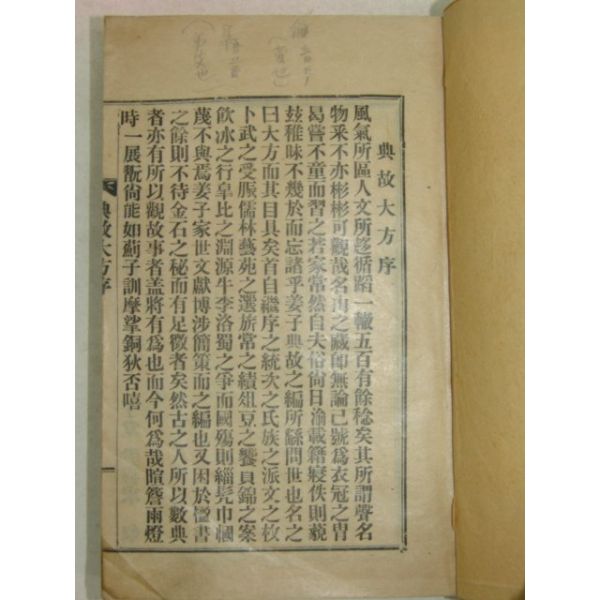 典故大方序
風氣所區人文所趍循蹈一轍五百有餘稔矣其所謂聲名
物采不亦彬彬可觀哉名山之藏卽無論已號爲衣冠之冑
曷嘗不童而習之若家常然自夫俗尙日渝載籍寢佚則藐
玆稚昧不幾於而忘諸乎姜子典故之編所繇問世也名之
曰大方而其目具矣首自繼序之統次之氏族之派文之枚
卜武之受脤儒林藝苑之選旂常之績俎豆之饗貝錦之案
飮冰之行皐比之淵源牛李洛蜀之爭而國殤則緇髡巾幗
蔑不與焉姜子家世文獻博涉簡策而之編也又因於書
之餘則不待金石之秘而有足徵者矣然古之人所以數典
者亦有所以觀故事者盖將有爲也而今何爲哉暄簷雨燈
時一展翫尙能如薊子訓摩挲銅狄否嘻
典故大方序